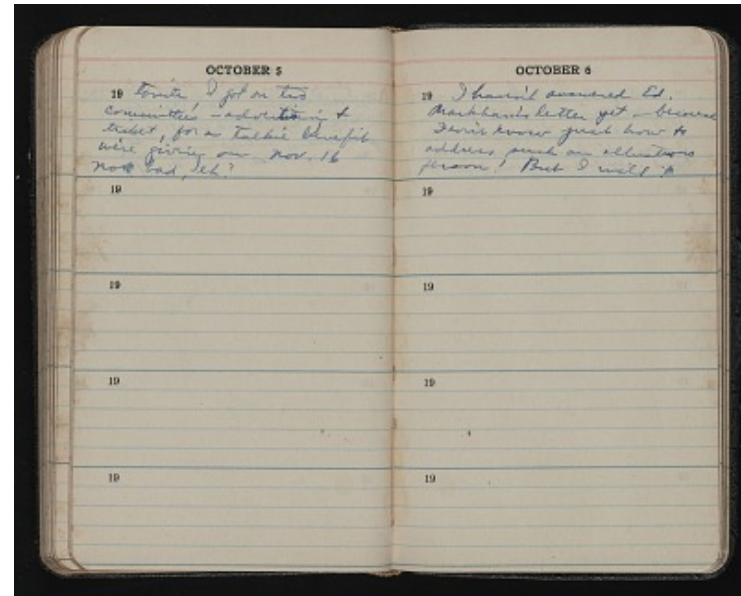 OCTOBER 5
19 Tonite I got on two
committees - advertising &
ticket, for a talkie benefit
we're giving on Nov. 16
Not bad, eh?
19
19
19
19
OCTOBER 6
19 I haven't answered Ed.
Markham's letter yet - because
I don't know just how to
address such an illustrious
person! But I will
19
19
19
19